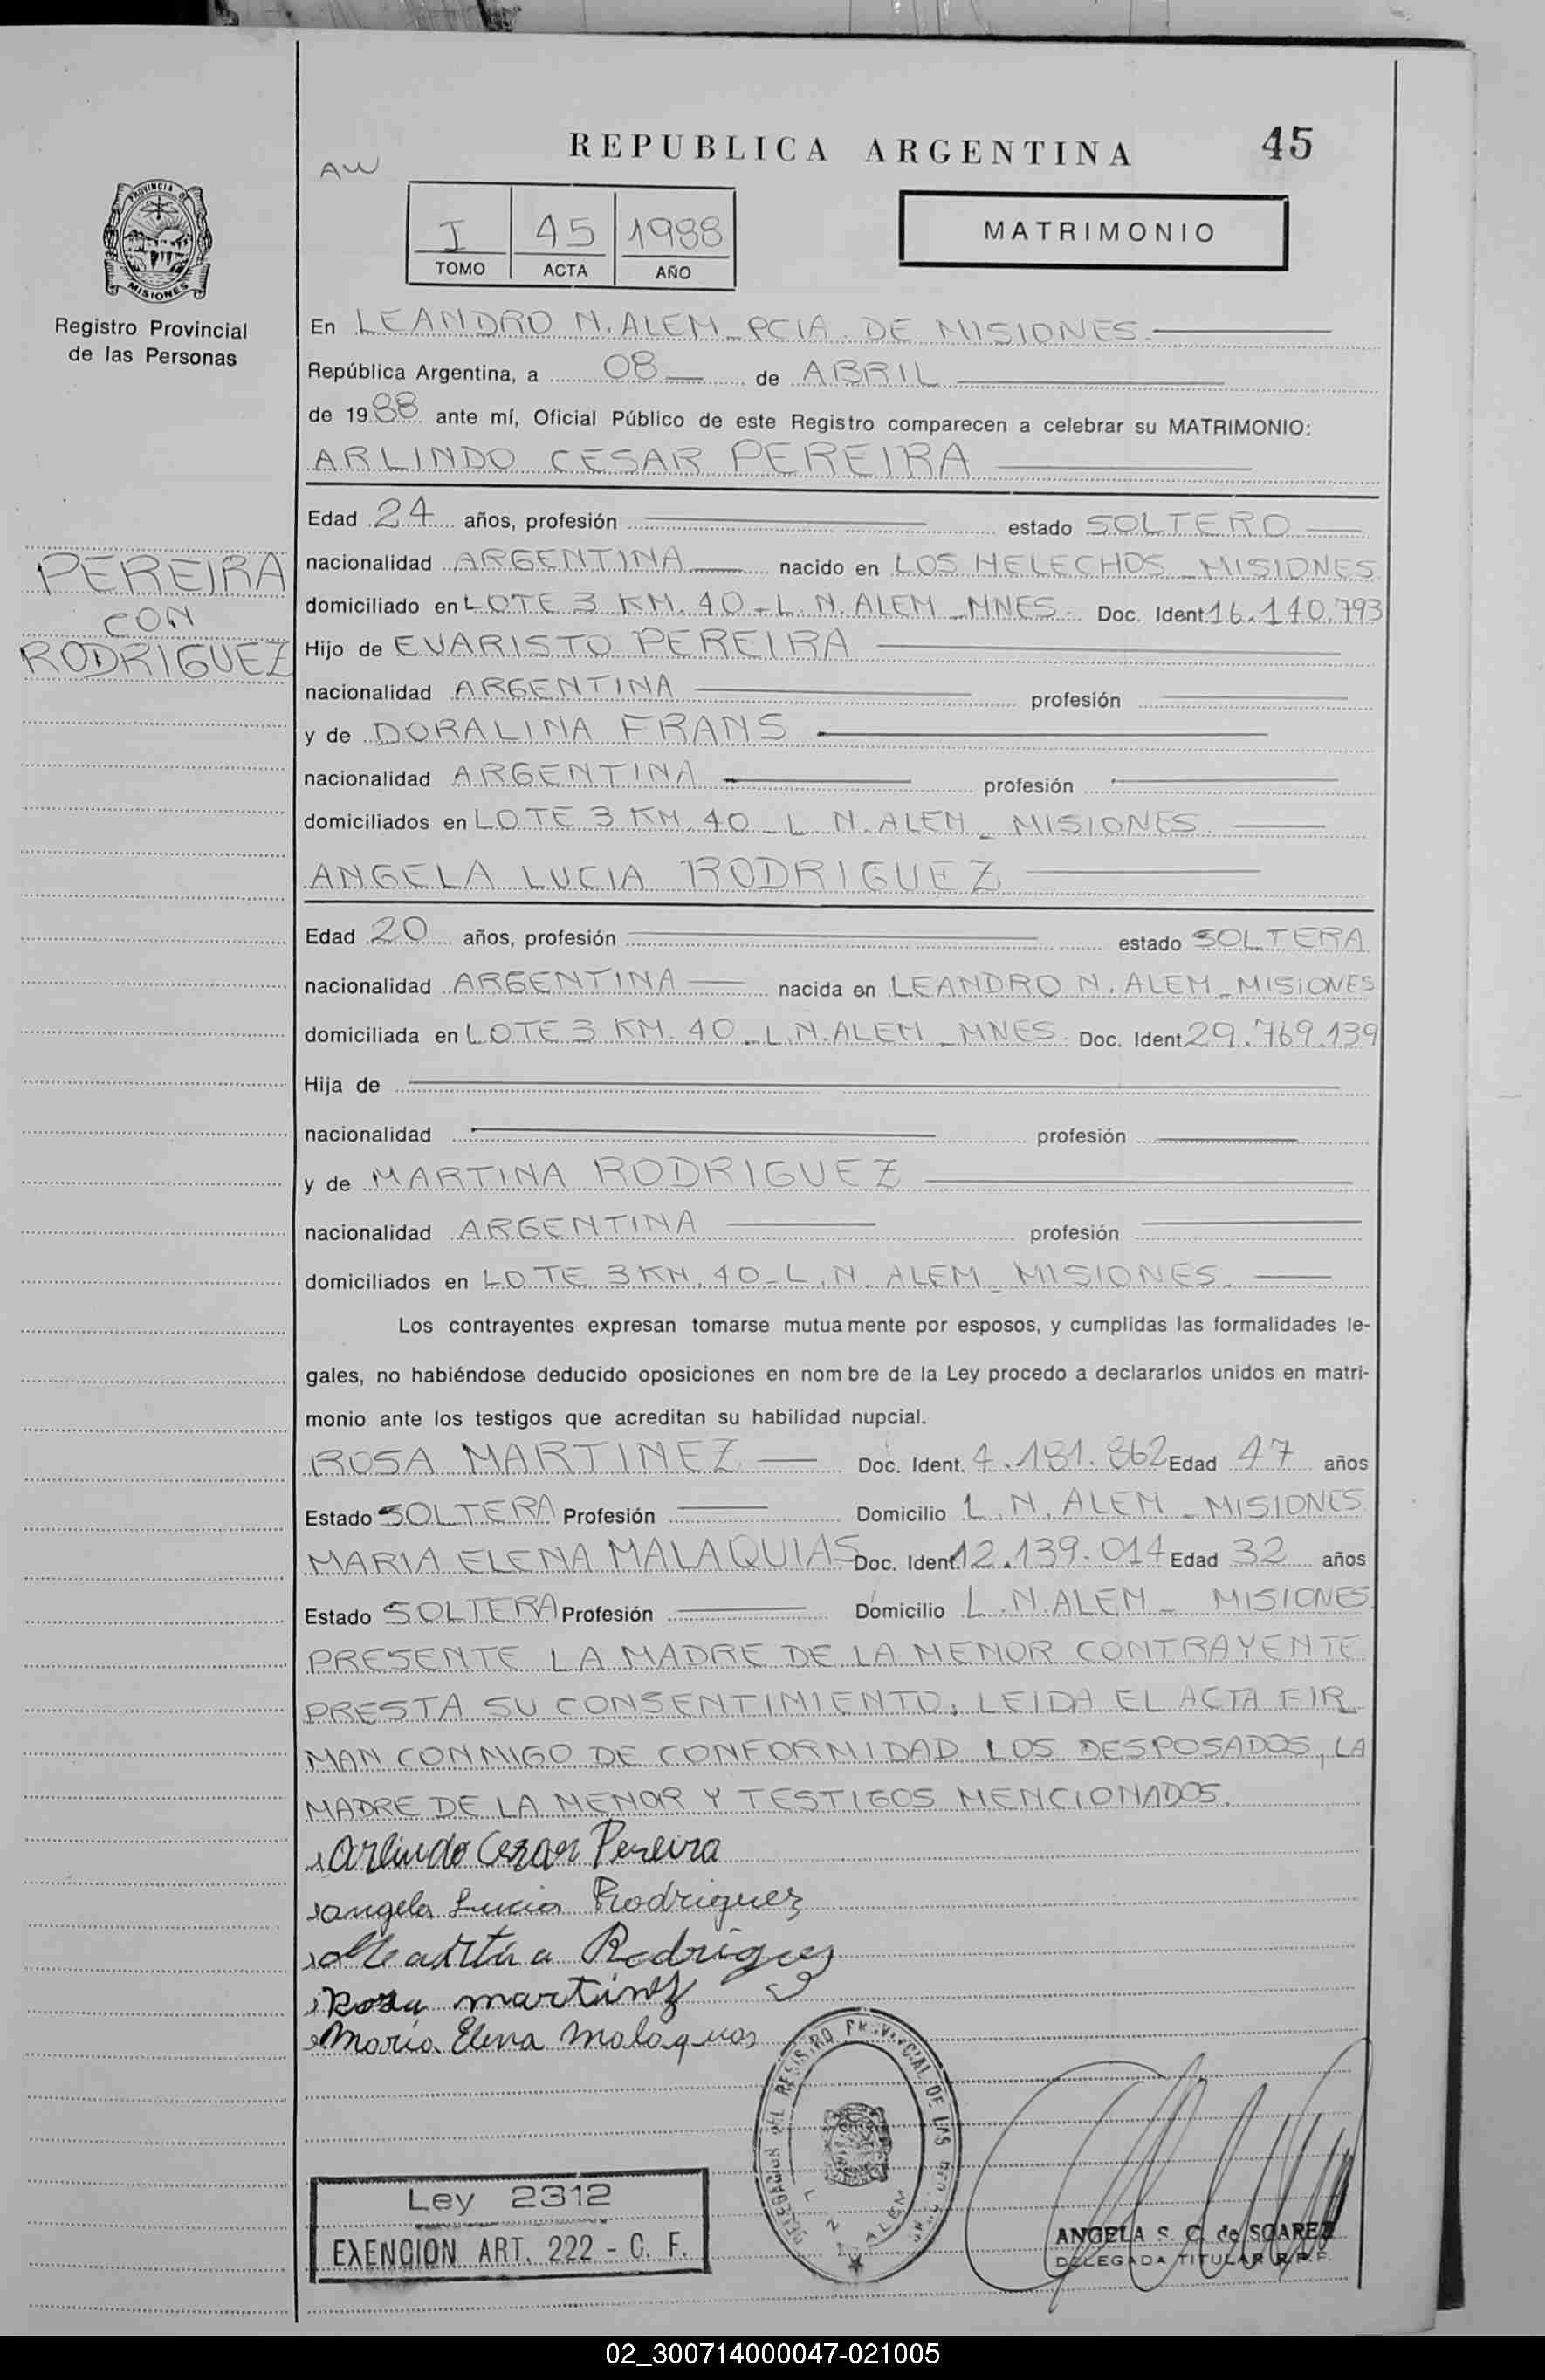 REPUBLICA ARGENTINA
45
AW
I 45 1988
TOMO ACTA AÑO
MATRIMONIO
PROVINCIA DE
MISIONES
Registro Provincial
de las Personas
En LEANDRO N. ALEM_PCIA. DE MISIONES.
República Argentina, a 08 de ABRIL
de 1988 ante mí, Oficial Público de este Registro comparecen a celebrar su MATRIMONIO:
ARLINDO CESAR PEREIRA
Edad 24 años, profesión estado SOLTERO
PEREIRA
CON
RODRIGUEZ
nacionalidad ARGENTINA nacido en LOS HELECHOS_MISIONES
domiciliado en LOTE 3 KM. 40_L. N. ALEM_MNES. Doc. Ident. 16.140.793
Hijo de EVARISTO PEREIRA
nacionalidad ARGENTINA profesión
y de DORALINA FRANS
nacionalidad ARGENTINA profesión
domiciliados en LOTE 3 KM. 40_L. N. ALEM_MISIONES
ANGELA LUCIA RODRIGUEZ
Edad 20 años, profesión estado SOLTERA
nacionalidad ARGENTINA nacida en LEANDRO N. ALEM_MISIONES
domiciliada en LOTE 3 KM. 40_L.N.ALEM_MNES. Doc. Ident. 29.769.139
Hija de
nacionalidad profesión
y de MARTINA RODRIGUEZ
nacionalidad ARGENTINA profesión
domiciliados en LOTE 3 KM. 40_L.N. ALEM_MISIONES.
Los contrayentes expresan tomarse mutuamente por esposos, y cumplidas las formalidades le-
gales, no habiéndose deducido oposiciones en nombre de la Ley procedo a declararlos unidos en matri-
monio ante los testigos que acreditan su habilidad nupcial.
ROSA MARTINEZ Doc. Ident. 4.181.862 Edad 47 años
Estado SOLTERA Profesión Domicilio L.N. ALEM_MISIONES
MARIA ELENA MALAQUIAS Doc. Ident. 12.139.014 Edad 32 años
Estado SOLTERA Profesión Domicilio L.N.ALEM_MISIONES
PRESENTE LA MADRE DE LA MENOR CONTRAYENTE
PRESTA SU CONSENTIMIENTO, LEIDA EL ACTA FIR
MAN CONMIGO DE CONFORMIDAD LOS DESPOSADOS, LA
MADRE DE LA MENOR Y TESTIGOS MENCIONADOS.
Arlindo Cezar Pereira
angela Lucia Rodriguez
Martina Rodriguez
Rosa martinez
Maria Elena Malaquias
DELEGACION DEL REGISTRO PROVINCIAL DE LAS
L. N. ALEM
Ley 2312
EXENCION ART. 222 - C. F.
ANGELA S. C. de SOAREZ
DELEGADA TITULAR R.P.P.
02_300714000047-021005